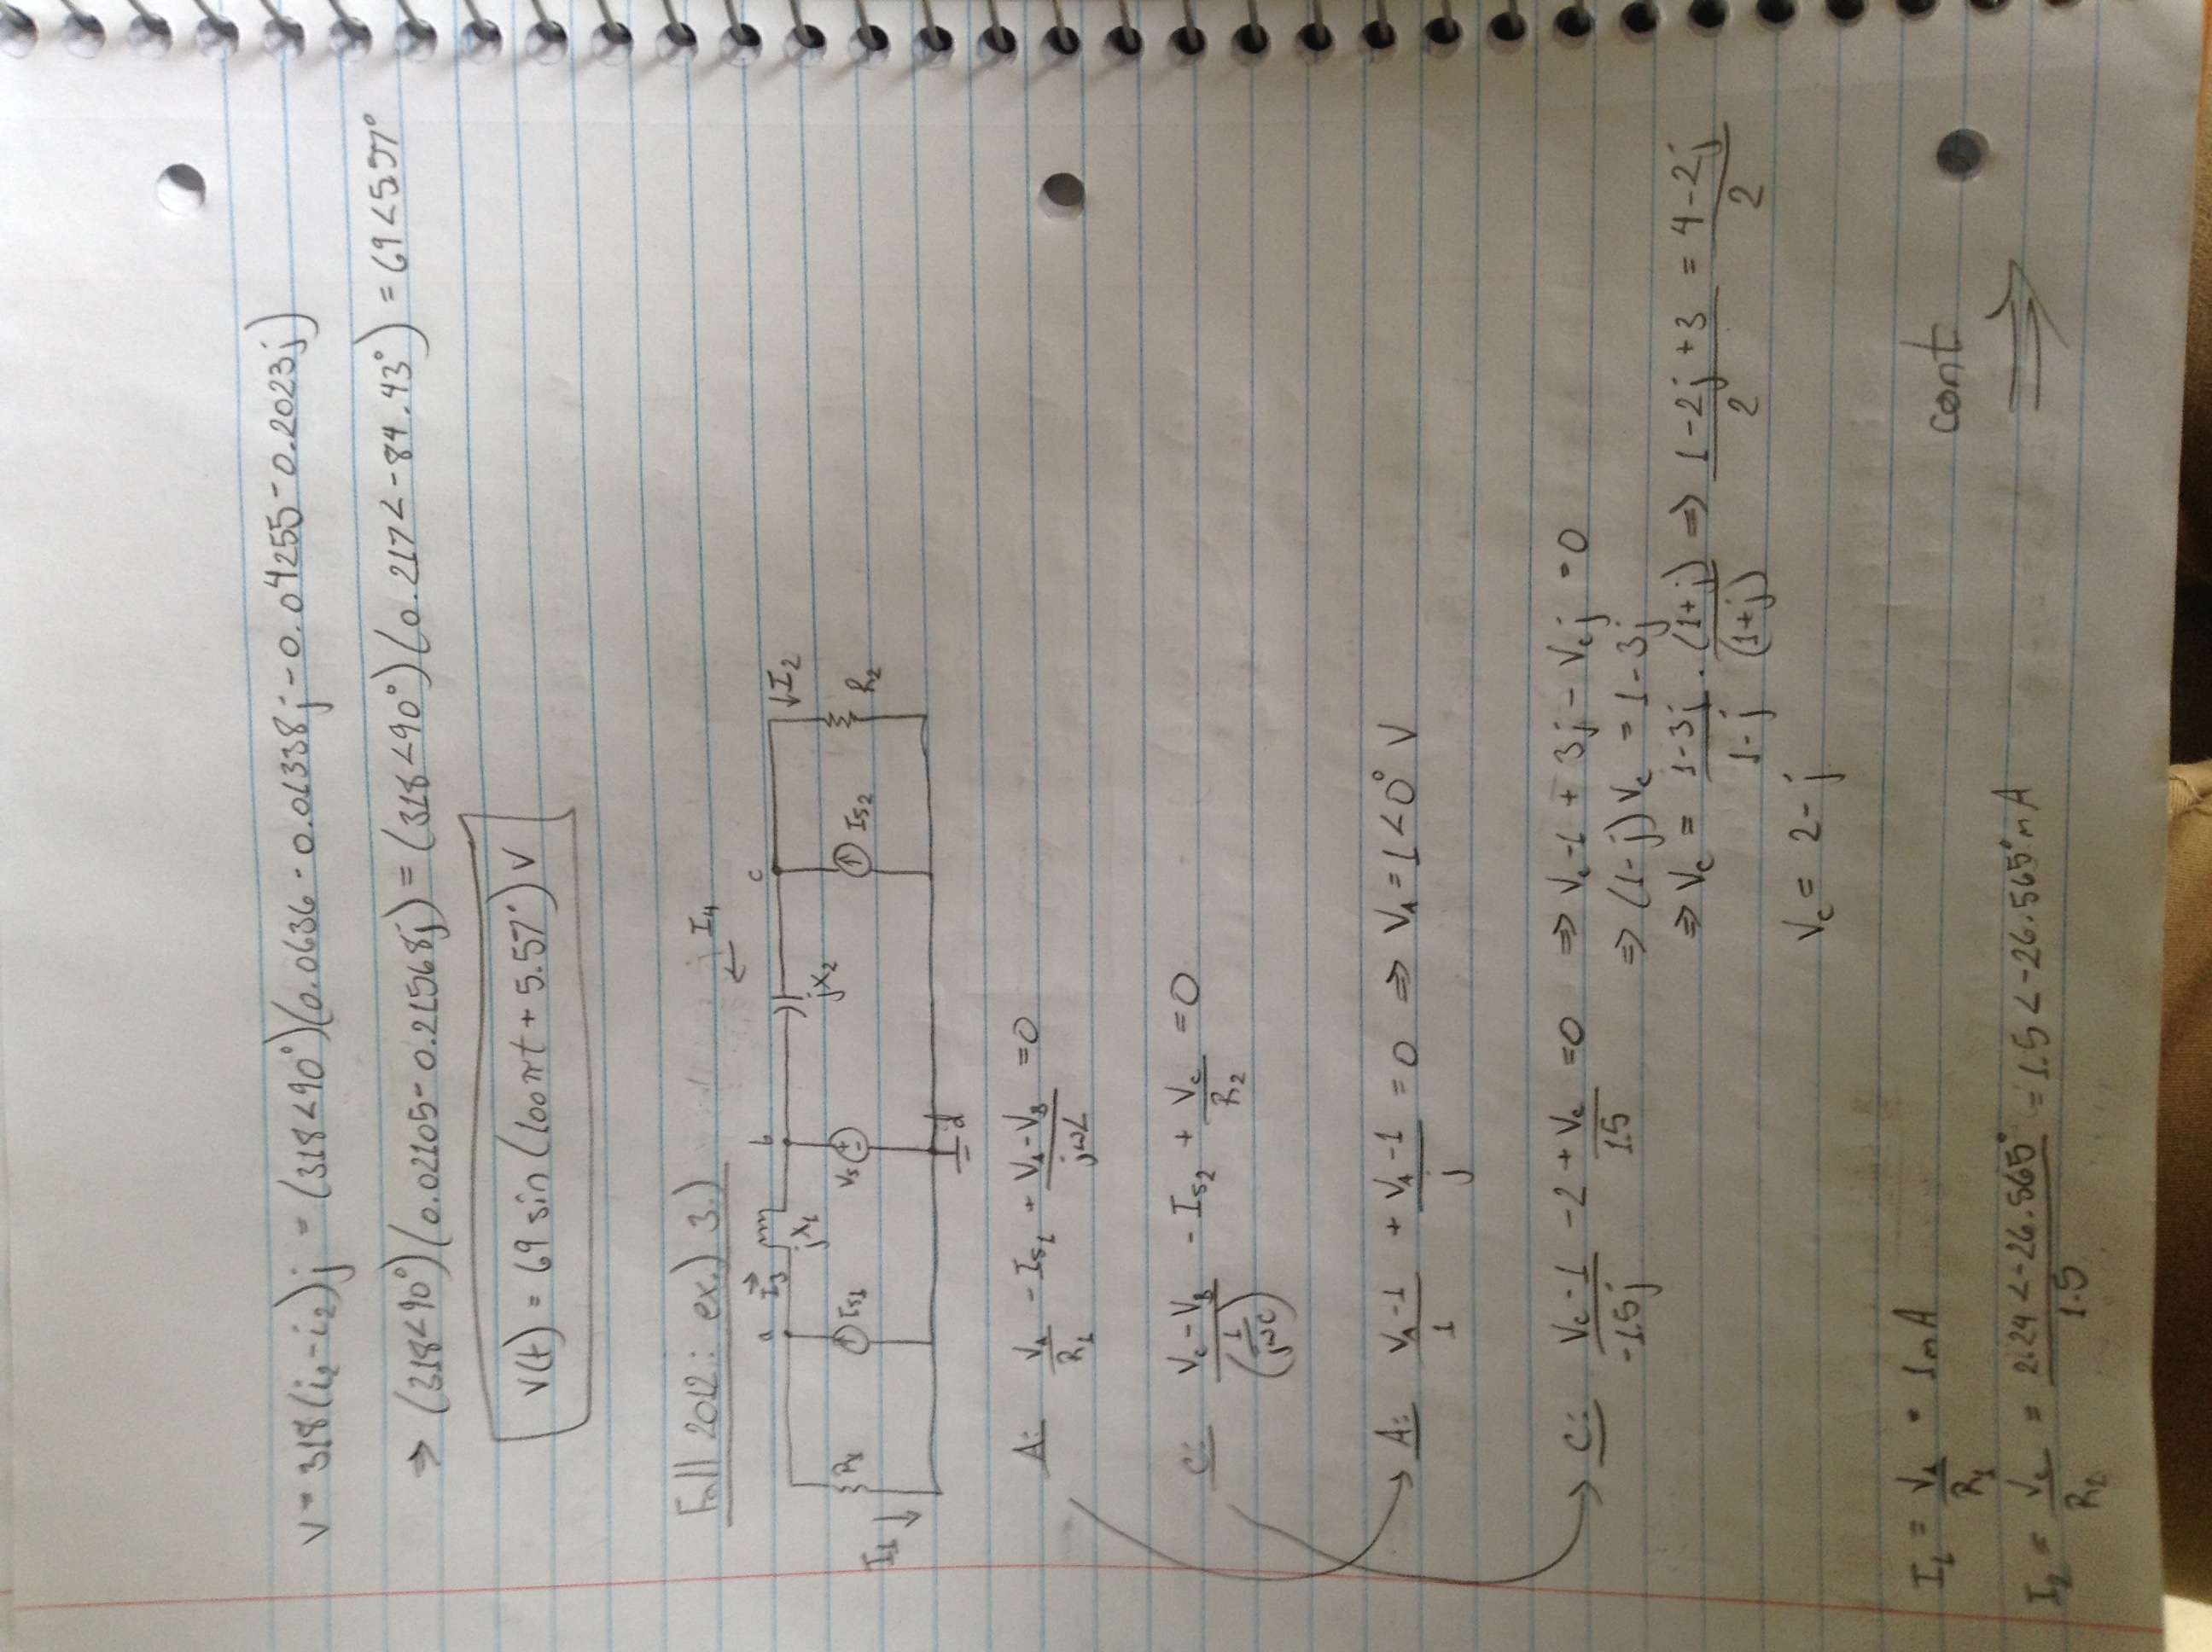 V = 318(i₂-i₂)j = (318<90°)(0.0636-0.01338j-0.04255-0.2023j)
⇒ (318<90°)(0.02105-0.21568j) = (318<90°)(0.217<-84.43°) = 69<5.57°
V(t) = 69 sin(100πt + 5.57°) V
Fall 2012: ex.) 3.)
I₄
a I₃ b c
jX₁ jX₂ ↓I₂
I₁ ↓ R₁ Is₁ Vs Is₂ R₂
d
A: V_A/R₁ - Is₁ + (V_A-V_B)/(jωL) = 0
C: (V_c-V_B)/(1/(jωC)) - Is₂ + V_c/R₂ = 0
→ A: (V_A-1)/1 + (V_A-1)/j = 0 ⇒ V_A = 1<0° V
→ C: (V_c-1)/(-1.5j) - 2 + V_c/1.5 = 0 ⇒ V_c-1 + 3j - V_cj = 0
⇒ (1-j)V_c = 1-3j
⇒ V_c = (1-3j)/(1-j) · (1+j)/(1+j) ⇒ (1-2j+3)/2 = (4-2j)/2
V_c = 2-j
I₁ = V_A/R₁ = 1mA
cont
I₂ = V_c/R₂ = (2.24<-26.565°)/1.5 = 1.5<-26.565° mA